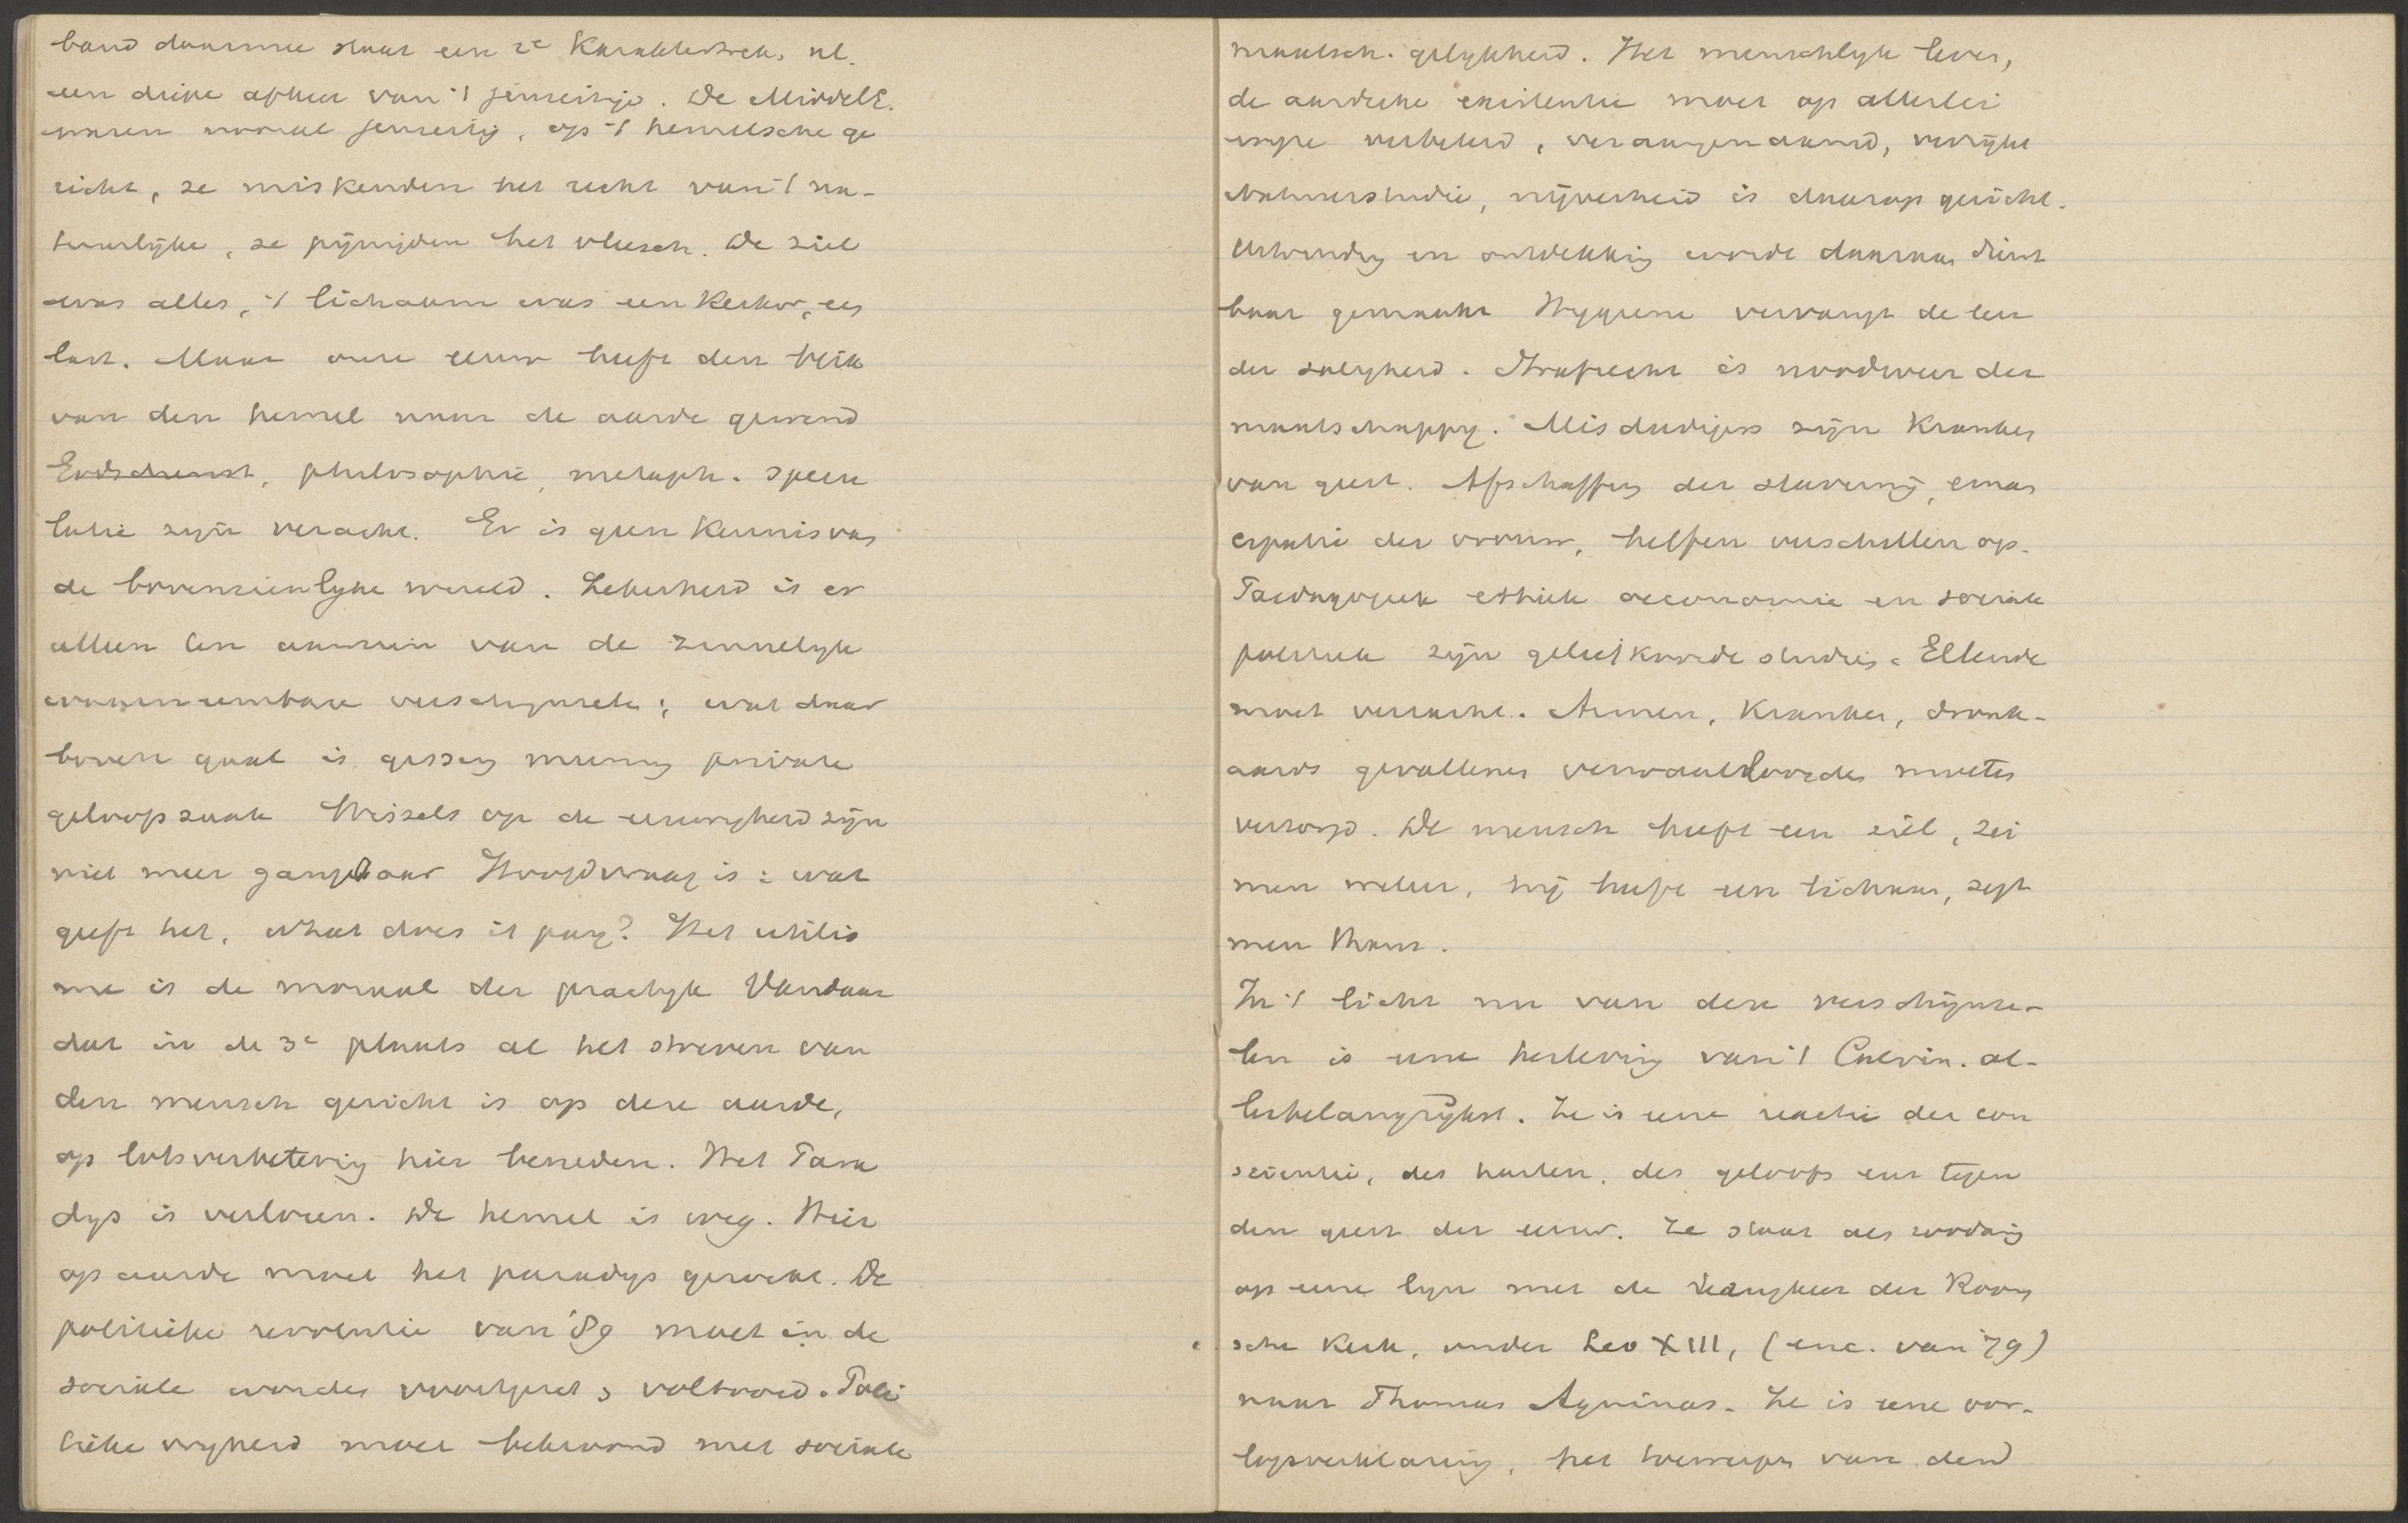 band daarmee staat een 2e Karaktertrek, nl.
een diepe afkeer van 't jenseitige. De MiddelE.
waren vooral jenseitig, op 't hemelsche ge
richt, ze miskenden het recht van 't na-
tuurlijke, ze pijnigden het vleesch. De ziel
was alles, 't lichaam was een Kerker, een
last. Maar onze eeuw heeft den blik
van den hemel naar de aarde gewend
Godsdienst, philosophie, metaph. specu
latie zijn veracht. Er is geen Kennis van
de bovenzienlyke wereld. Zekerheid is er
alleen ten aanzien van de zinnelyk
waarneembare verschijnselen; wat daar
boven gaat is gissing meening private
geloofszaak Wissels op de eeuwigheid zijn
niet meer gangbaar Hoofdvraag is: wat
geeft het, what does it pay? Het utilis
me is de moraal der practyk Vandaar
dat in de 3e plaats al het streven van
den mensch gericht is op deze aarde,
op lotsverbetering hier beneden. Het Para
dys is verloren. De hemel is weg. Hier
op aarde moet het paradys gezocht. De
politieke revolutie van '89 moet in de
sociale worden voortgezet & voltooid. Poli
tieke vryheid moet bekroond met sociale
maatsch. gelykheid. Het menschlyk leven,
de aardsche existentie moet op allerlei
wyze verbeterd, veraangenaamd, verrijkt
Natuurstudie, nijverheid is daarop gericht.
Uitvinding en ontdekking worde daaraan dienst
baar gemaakt Hygiene vervangt de leer
der zaligheid. Strafrecht is noodweer der
maatschappy. Misdadigers zijn Kranken
van geest. Afschaffing der slavernij, eman
cipatie der vrouw, heffen verschillen op.
Paedagogiek ethiek oeconomie en sociale
politiek zijn geliefkoosde studies. Ellende
moet verzacht. Armen, Kranken, dronk-
aards gevallenen verwaarloosden moeten
verzorgd. De mensch heeft een ziel, zei
men weleer, hij heeft een lichaam, zegt
men thans.
In 't licht nu van deze verschijnse-
len is eene herleving van 't Calvin. al-
lerbelangrijkst. Ze is eene reactie der con
scientie, des harten, des geloofs enz tegen
den geest der eeuw. Ze staat als zoodanig
op eene lyn met de terugkeer der Room
sche Kerk, onder Leo XIII, (enc. van '79)
naar Thomas Aquinas. Ze is eene oor-
logsverklaring, het toewerpen van den